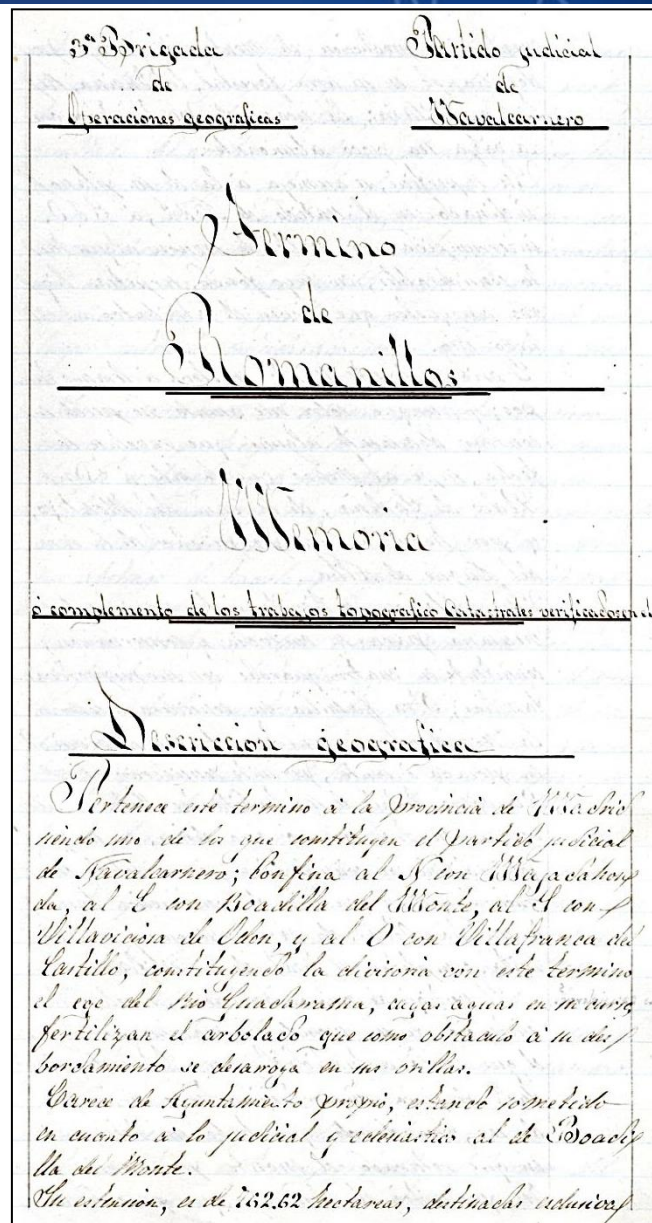 3ª Brigada
de
Operaciones geográficas
Partido judicial
de
Navalcarnero
Termino
de
Romanillos
Memoria
ó complemento de los trabajos topografico Catastrales verificados en el
Descriccion geografica
Pertenece este termino á la provincia de Madrid
siendo uno de los que constituyen el partido judicial
de Navalcarnero; Confina al N con Majadahon
da, al E con Boadilla del Monte, al S con
Villaviciosa de Odon, y al O con Villafranca del
Castillo, constituyendo la divisoria con este termino
el ege del Rio Guadarrama, cuyas aguas en su curso,
fertilizan el arbolado que como obstaculo á su des
bordamiento se desaroya en sus orillas.
Carece de Ayuntamiento propio, estando sometido
en cuanto á lo judicial y eclesiastico al de Boadi
lla del Monte.
Su estension, es de 762.62 hectareas, destinadas esclusiva